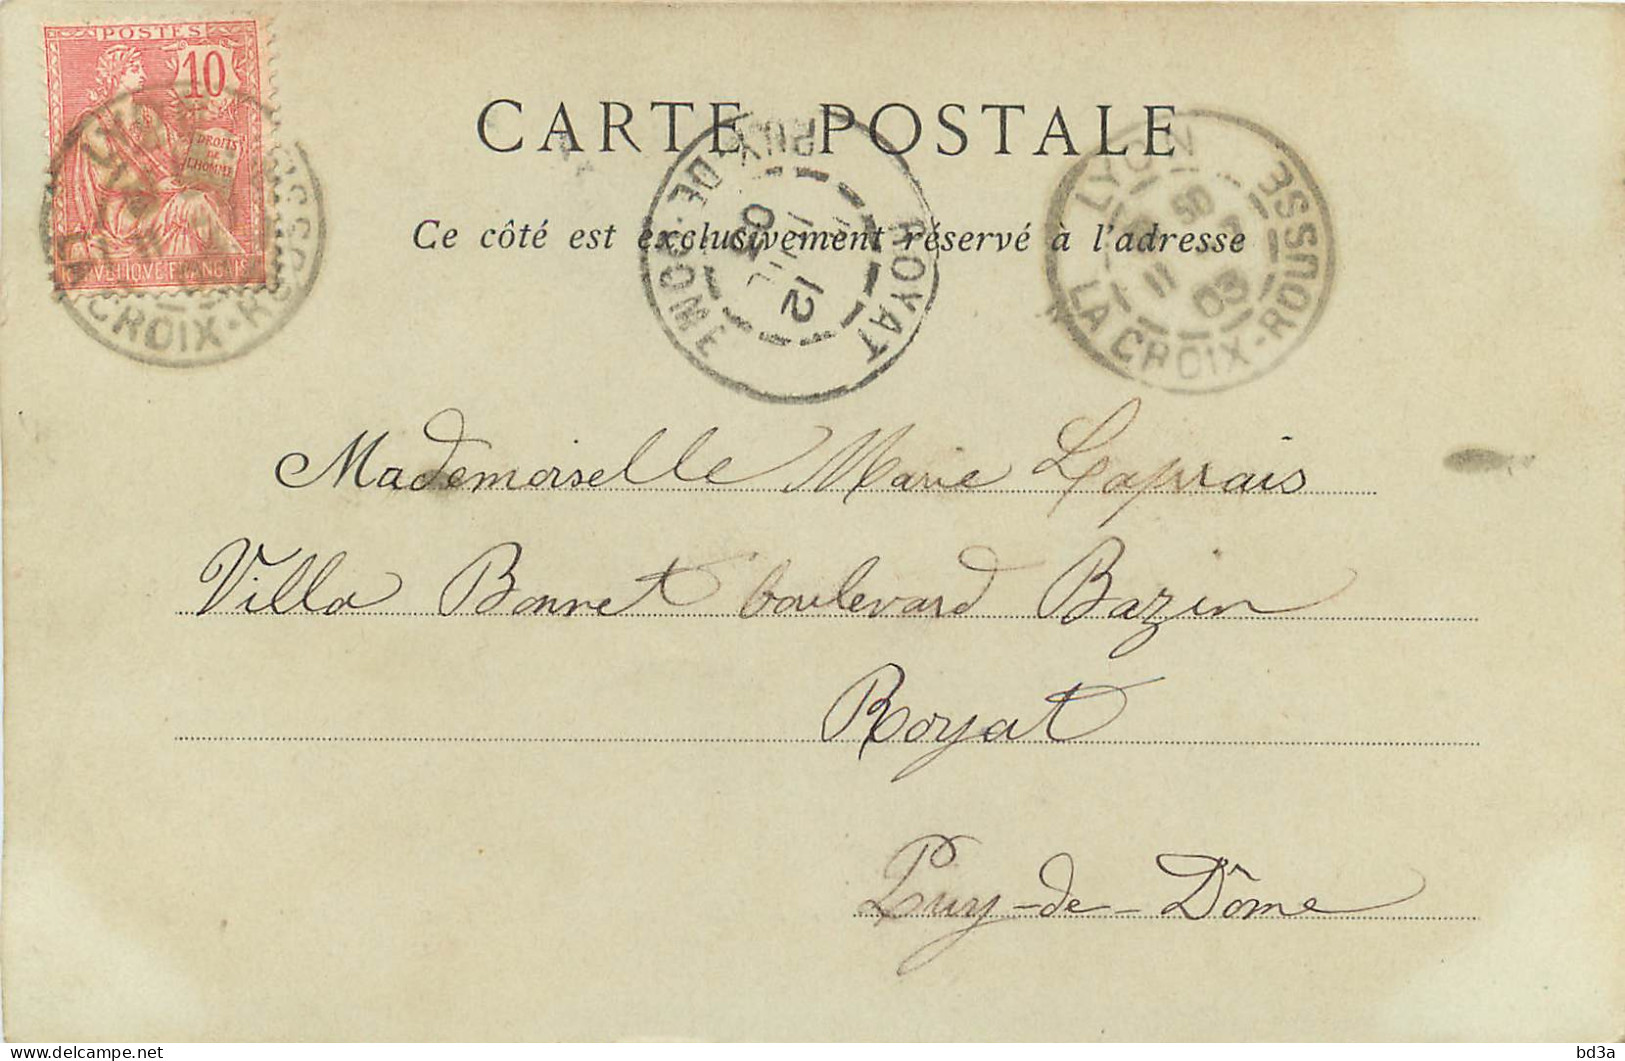 POSTES
10
DROITS
DE
L'HOMME
REPUBLIQUE FRANÇAISE
CROIX-ROUSSE
CARTE POSTALE
ROYAT
PUY-DE-DOME
12
JUIL
03
LYON
LA CROIX-ROUSSE
11
03
Ce côté est exclusivement réservé à l'adresse
Mademoiselle Marie Laprais
Villa Bonnet boulevard Bazin
Royat
Puy-de-Dôme
bd3a